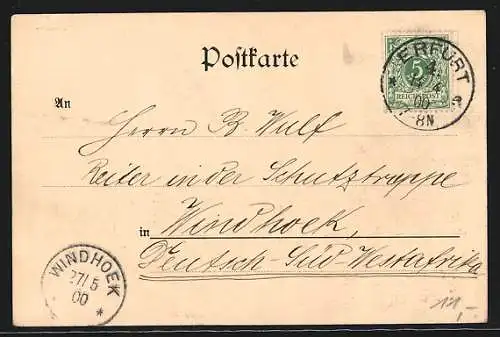 Postkarte
5
REICHSPOST
ERFURT
4
00
7-8N
An
Herrn R. Wulf
Reiter in der Schutztruppe
in Windhoek,
Deutsch-Süd-Westafrika
WINDHOEK
27/5
00